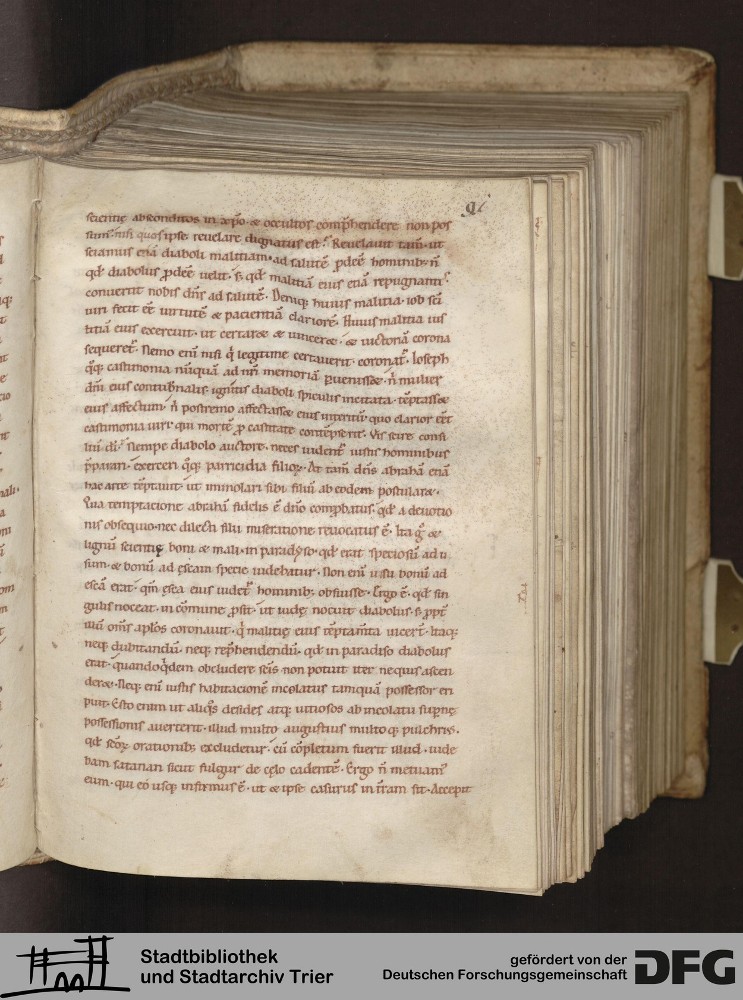 96
scientię absconditos in xp̄o · & occultos comp̄hendere non pos
sum · nisi quos ipse reuelare dignatus est · Reuelauit tam̄ · ut
sciamus etiā diaboli malitiam · ad salutē p̄deē hominib; · n̄
qd̄ diabolus p̄deē uelit · s; qd̄ malitiā eius etiā repugnanti
conuertit nobis dn̄s ad salutē · Deniq; huius malitia · iob sc̄i
uiri fecit eē uirtutē & pacientiā clariorē · Huius malitia ius
titiā eius exercuit · ut certar& & uincer& · & uictoriā corona
sequeret̄ · Nemo enī nisi q̇ legitime certauerit · coronat̄ · Ioseph
q̄q; castimonia nūquā ad nr̄ī memoriā p̱uenisset · n̄ mulier
dn̄i eius contub̄nalis · ignitis diaboli spiculis incitata · tēptass&
eius affectum · n̄ postremo affectass& eius interitū · quo clarior eēt
castimonia uiri · qui mortē p̱ castitate contēpserit · Vis scire consi
liū dī · Nempe diabolo auctore · neces uident̄ iustis hominibus
p̄parari · exerceri q̄q; parricidia filioꝝ · At tam̄ dn̄s abrahā etiā
hac arte tēptauit · ut immolari sibi filiū ab eodem postular& ·
Qua temptacione abrahā fidelis ē dn̄o comp̱batus · qd̄ a deuotio
nis obsequio · nec dilecti filii miseratione reuocatus ē · Ita g̊ &
lignū scientię boni & mali · in paradyso · qd̄ erat speciosū ad ui
sum · & bonū ad ęscam specie uidebatur · Non enī usu bonū ad
escā erat · qm̄ ęsca eius uidet̄ hominib; obfuisse · Ergo ē · qd̄ sin
gulis noceat · in cōmune prosit · ut iudę nocuit diabolus · s; p̱pt̄
illū om̄s aplōs coronauit · q̇ malitię eius tēptam̄ta uicer̄t · Itaq;
neq; dubitandū · neq; rep̄hendendū · qd̄ in paradiso diabolus
erat · quandoq̇dem obcludere sc̄is non potuit iter ne quis ascen
der& · Neq; enī iustis habitacionē incolatus tamquā possessor eri
puit · Esto enim ut aliq̊s desides atq; uitiosos ab incolatu sup̄nę
possessionis auerterit · illud multo augustius multoq; pulchriꝰ ·
qd̄ sc̄oꝝ orationib; excludetur · cū cōpletum fuerit illud · uide
bam satanan sicut fulgur de cęlo cadentē · Ergo n̄ metuamꝰ
eum · qui eo usq; infirmus ē · ut & ipse casurus in t̄ram sit · Accepit
Stadtbibliothek
und Stadtarchiv Trier
gefördert von der
Deutschen Forschungsgemeinschaft
DFG